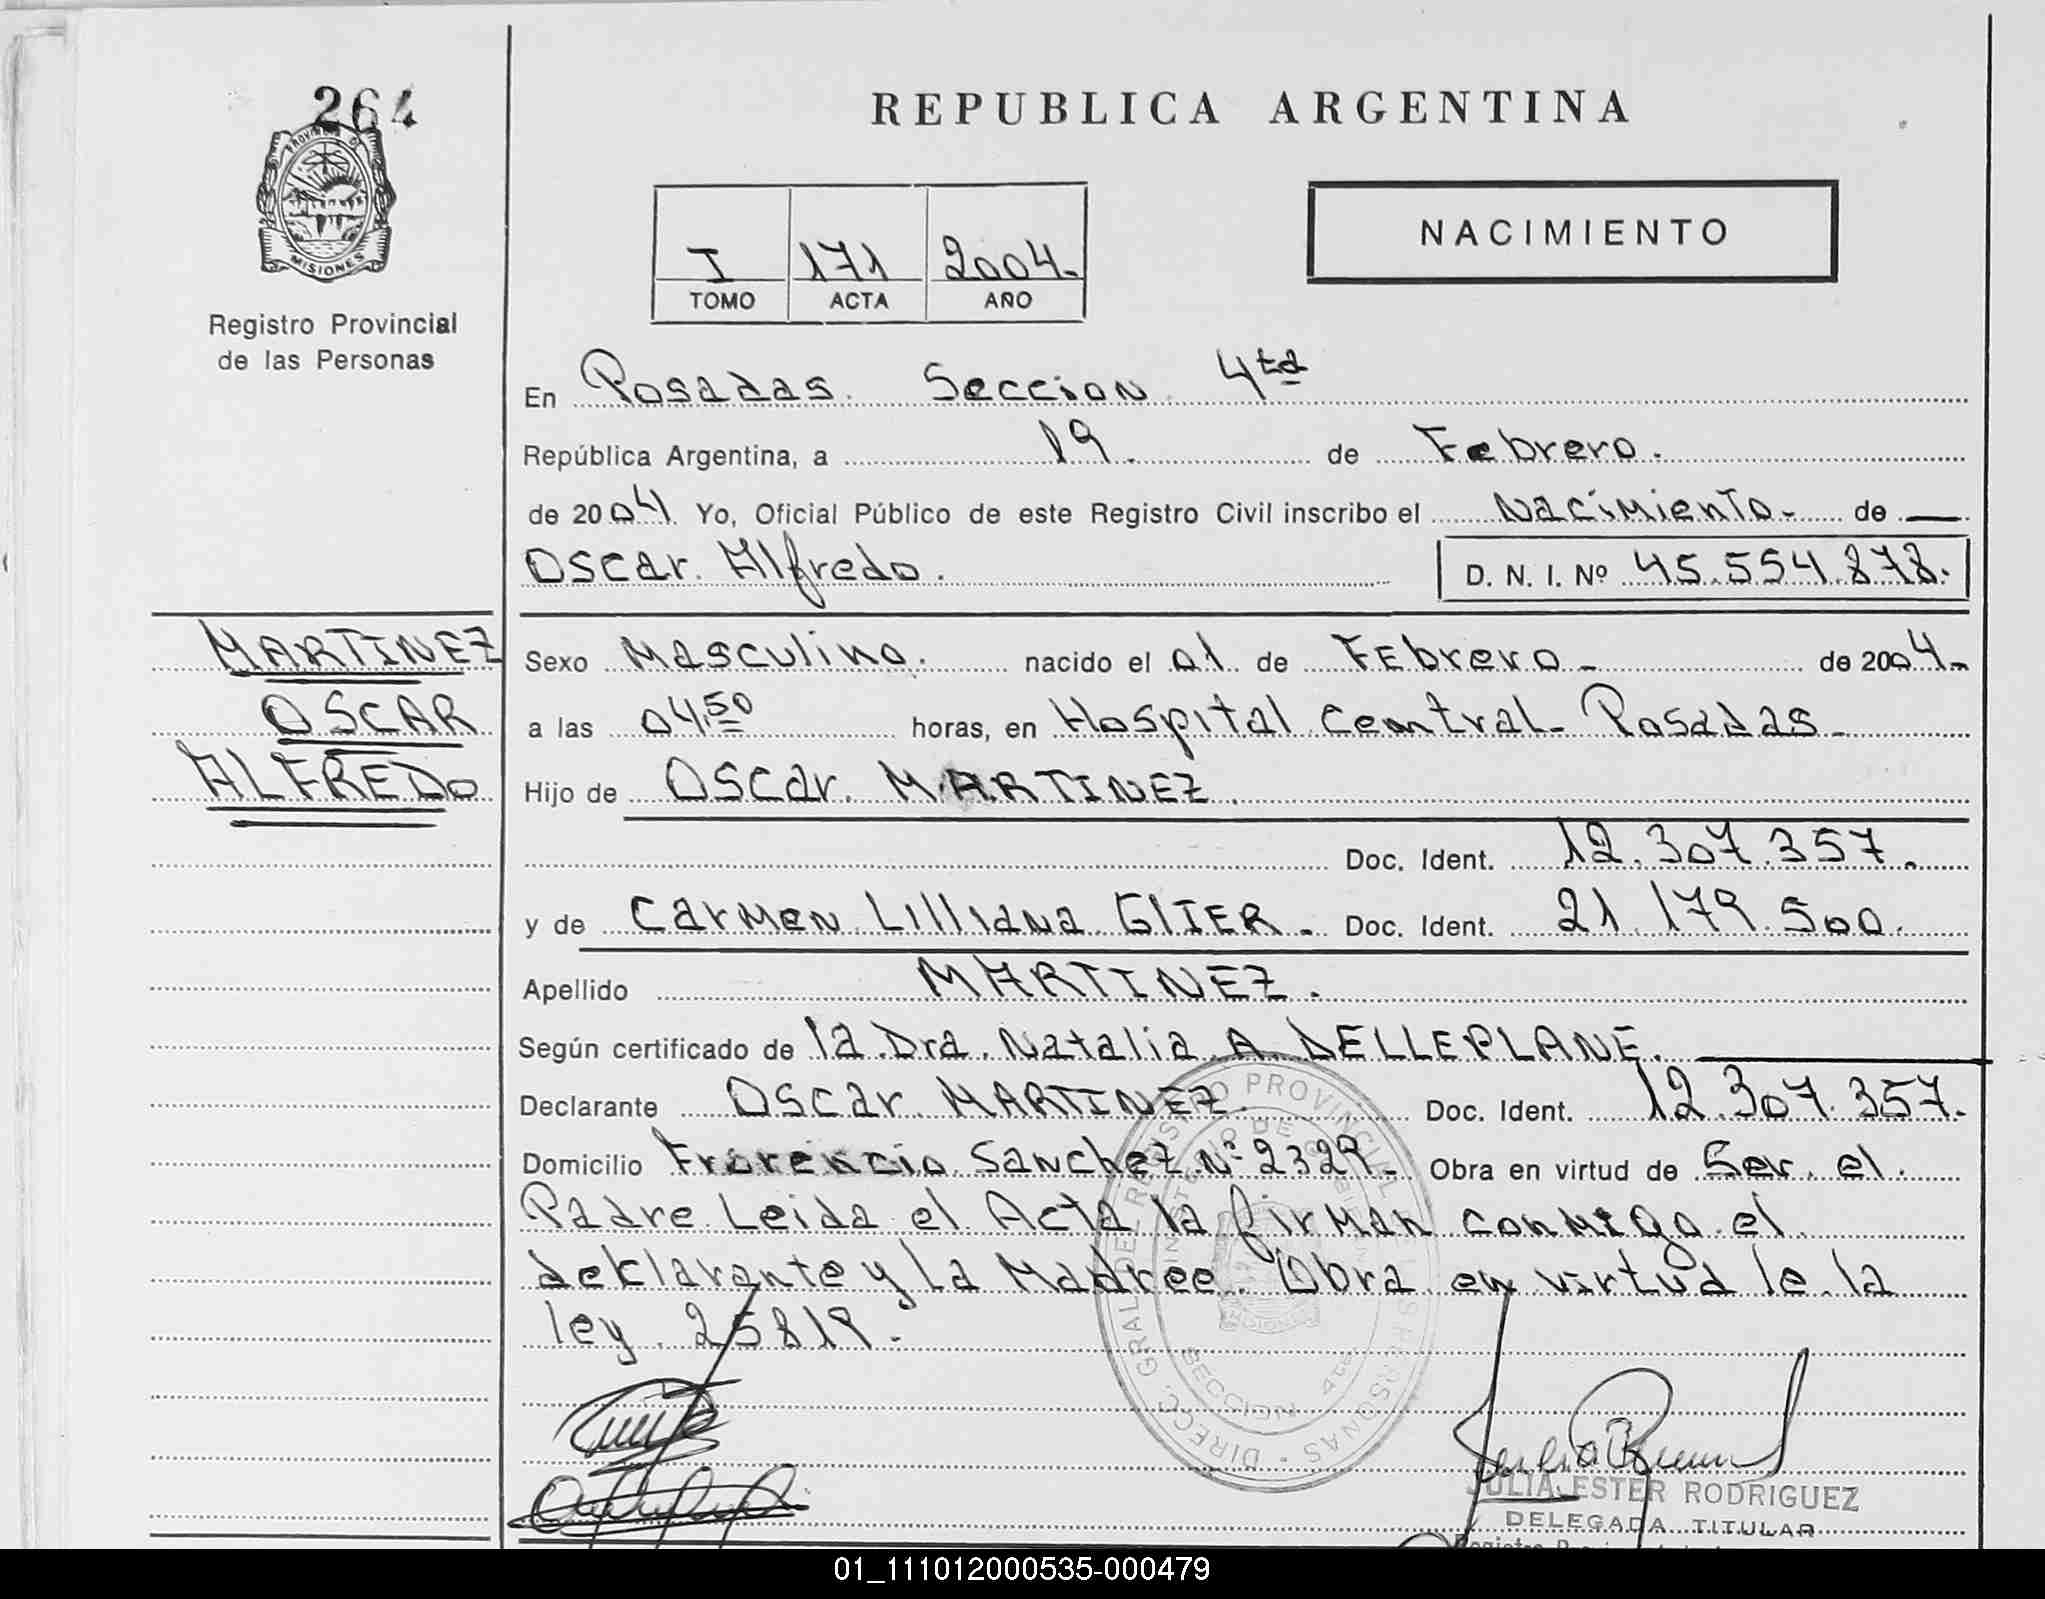 264
PROVINCIA DE
MISIONES
Registro Provincial
de las Personas
REPUBLICA ARGENTINA
I 171 2004.
TOMO ACTA AÑO
NACIMIENTO
En Posadas. Seccion 4ta
República Argentina, a 19. de Febrero.
de 2004 Yo, Oficial Público de este Registro Civil inscribo el Nacimiento - de —
Oscar Alfredo. D. N. I. Nº 45.554.878.
MARTINEZ
OSCAR
ALFREDO
Sexo Masculino. nacido el 01 de FEbrero - de 2004-
a las 04.50 horas, en Hospital Central- Posadas-
Hijo de Oscar MARTINEZ.
Doc. Ident. 12.307.357.
y de Carmen Lilliana GlIER. Doc. Ident. 21.179.500.
Apellido MARTINEZ.
Según certificado de la Dra. Natalia A. DELLEPLANE.
Declarante Oscar MARTINEZ. Doc. Ident. 12.307.357.
Domicilio Frorencio Sanchez Nº 2329- Obra en virtud de Ser el
Padre Leida el Acta la firman conmigo el
deklarante y La Madree. Obra en virtud le la
ley 25819.-
DIRECC. GRAL. DEL REGISTRO PROVINCIAL DE LAS PERSONAS
MINISTERIO DE GOBIERNO
MISIONES
SECCION 4ta
JULIA ESTER RODRIGUEZ
DELEGADA TITULAR
01_111012000535-000479